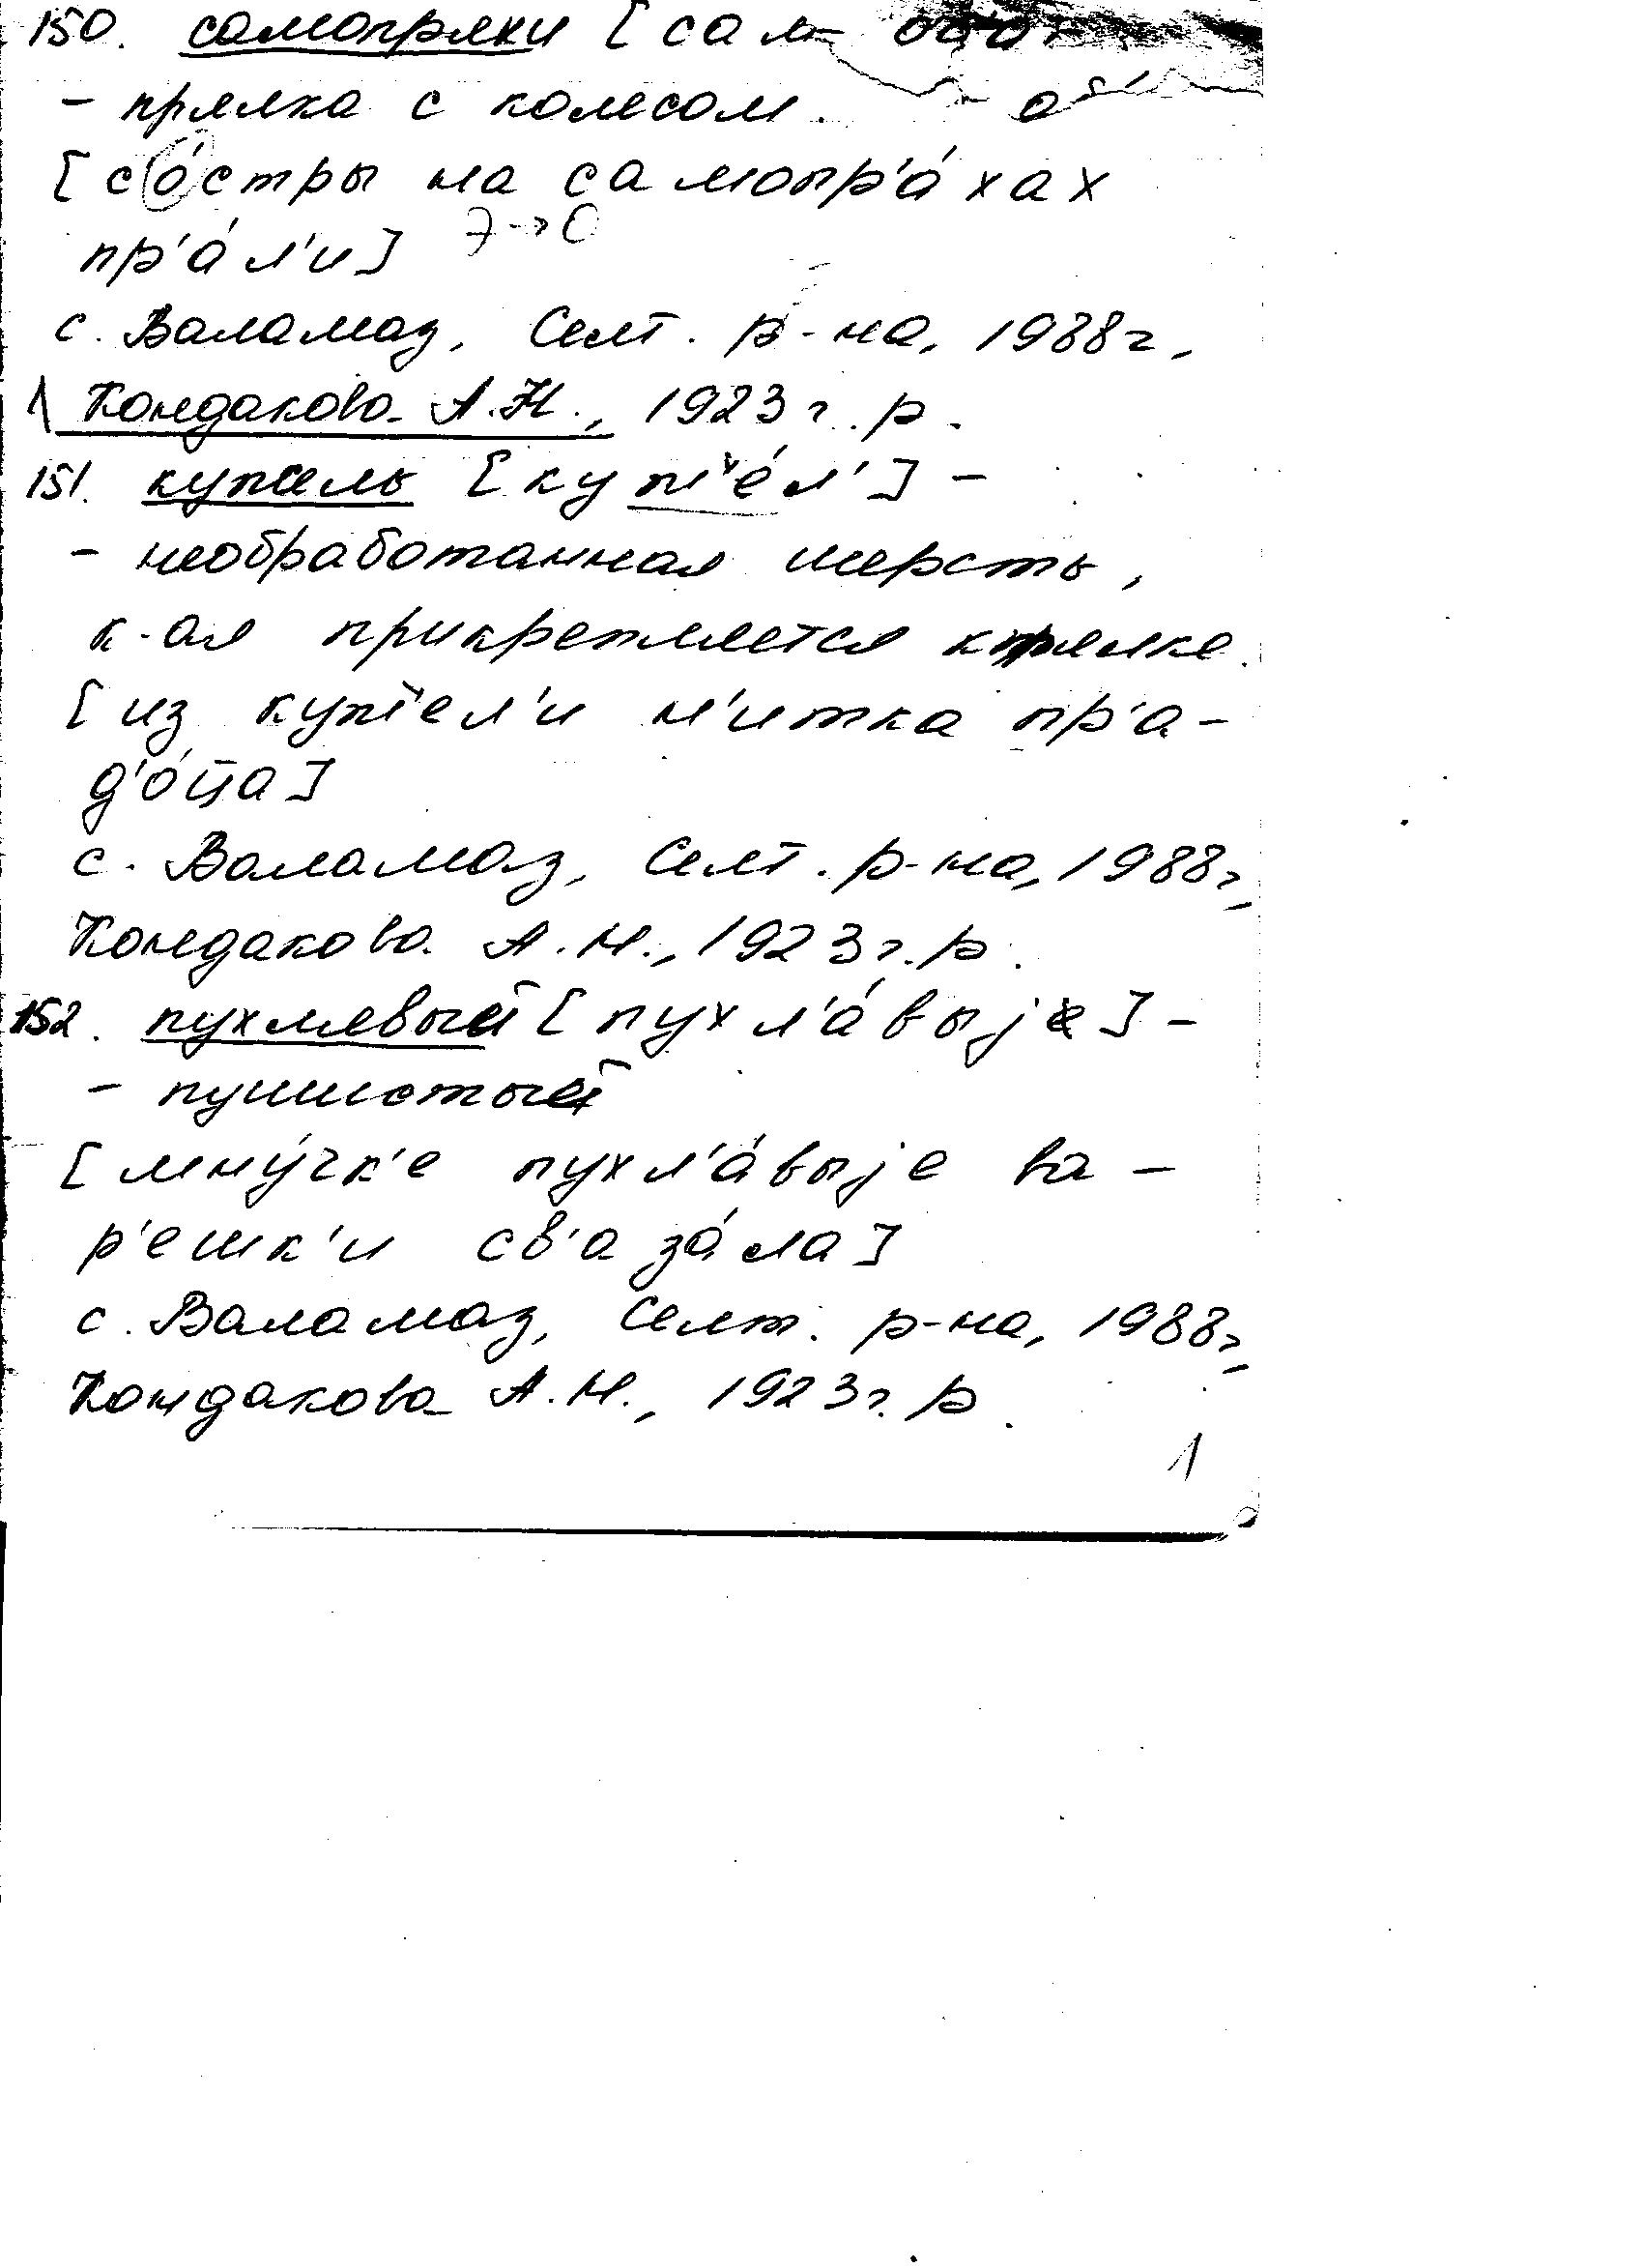 150. самопряхи [сам
- прялка с колесом.
[со́стры на самопр'а́хах
пр'а́л'и] э→о
с. Валамаз, Селт. р-на, 1988г.,
Кондакова А.Н., 1923г.р.
151. кужель [куж'е́л'] -
- необработанная шерсть,
к-ая прикрепляется к прялке.
[из куж'ел'и н'итка пр'а-
д'о́ца]
с. Валамаз, Селт. р-на, 1988г.,
Кондакова А.Н., 1923г.р.
152. пухлявый [пухл'а́выjе] -
- пушистый
[мну́чк'е пухл'а́выjе ва-
р'ешк'и св'аза́ла]
с. Валамаз, Селт. р-на, 1988г.,
Кондакова А.Н., 1923г.р.
1